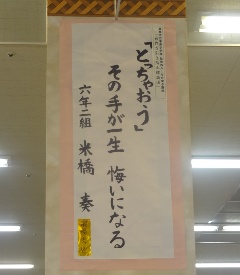 「とっちゃおう」
その手が一生 悔いになる
六年二組 米橋 奏